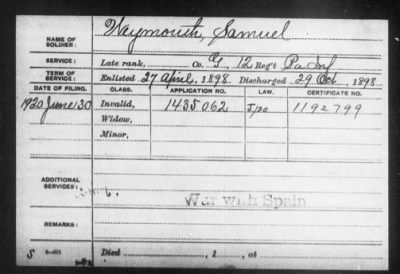 NAME OF SOLDIER: Waymouth, Samuel
SERVICE: Late rank, Co. G, 12 Reg't Pa Inf
TERM OF SERVICE: Enlisted 27 April, 1898 Discharged 29 Oct, 1898
DATE OF FILING. CLASS. APPLICATION NO. LAW. CERTIFICATE NO.
1920 June 30 Invalid, 1435062 1192799
Widow,
Minor,
ADDITIONAL SERVICES:
War with Spain
REMARKS:
S
Died , 1 , at